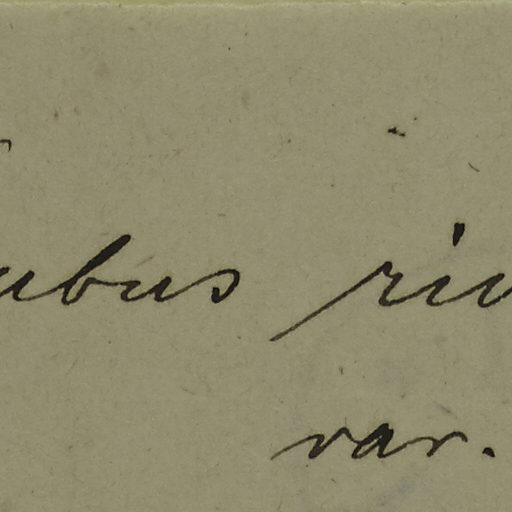 ubus riv
var.